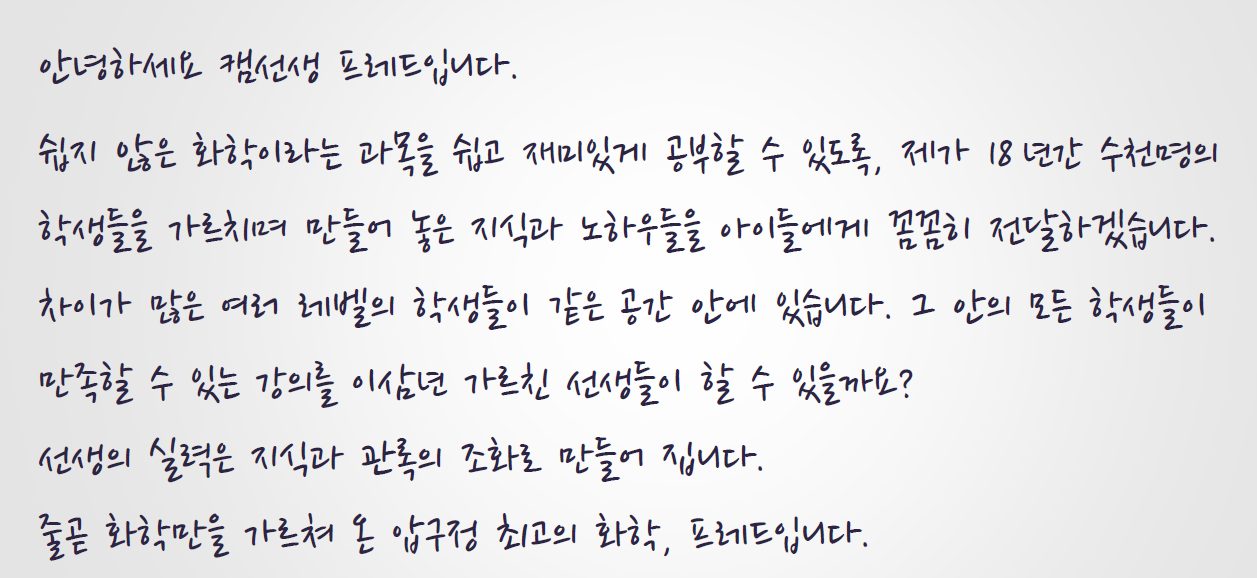 안녕하세요 캠선생 프레드입니다.
쉽지 않은 화학이라는 과목을 쉽고 재미있게 공부할 수 있도록, 제가 18년간 수천명의
학생들을 가르치며 만들어 놓은 지식과 노하우들을 아이들에게 꼼꼼히 전달하겠습니다.
차이가 많은 여러 레벨의 학생들이 같은 공간 안에 있습니다. 그 안의 모든 학생들이
만족할 수 있는 강의를 이삼년 가르친 선생들이 할 수 있을까요?
선생의 실력은 지식과 관록의 조화로 만들어 집니다.
줄곧 화학만을 가르쳐 온 압구정 최고의 화학, 프레드입니다.